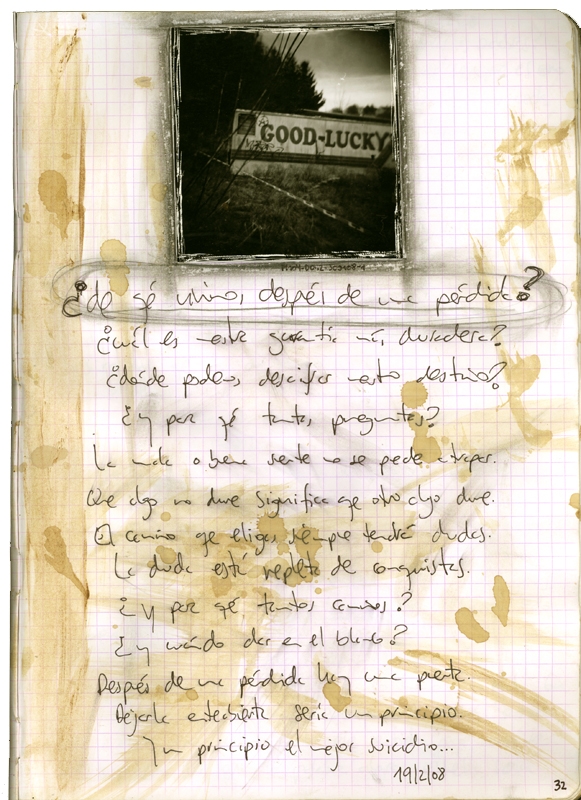 GOOD-LUCKY
¿de qé vivimos después de una pérdida?
¿Cuál es nuestra garantía más duradera?
¿dónde podemos descifrar nuestro destino?
¿y por qé tantas preguntas?
La mala o buena suerte no se puede atrapar.
Que algo no dure significa qe otro algo dure.
El camino qe eligas siempre tendrá dudas.
La duda está repleta de conquistas.
¿y por qé tantos caminos?
¿y cuándo dar en el blanco?
Después de una pérdida hay una puerta.
Dejarla entreabierta sería un principio.
Y un principio el mejor suicidio...
19/2/08
32